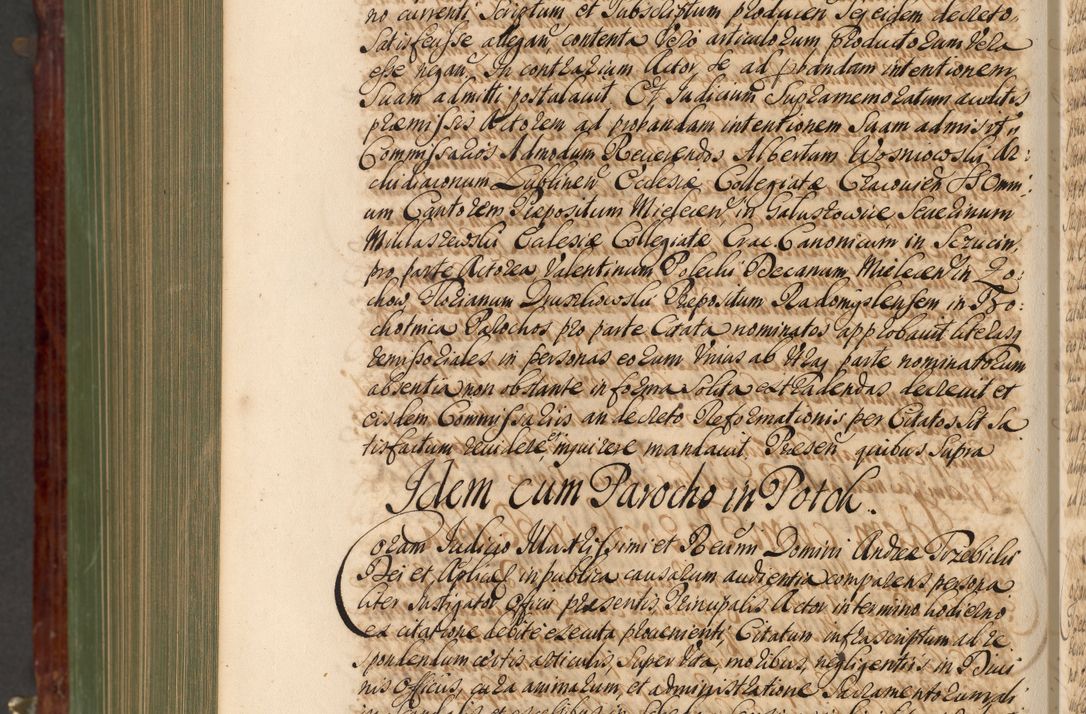 no currenti Scriptum et Subscriptum producen Sej eidem decreto
Satisfecisse allegavit contenta Vero articulorum productorum Vera
esse negavit In contrarium Actor se ad probandam intentionem
Suam admitti postulavit. Et Judicium Supramemoratum auditis
præmissis Actorem ad probandam intentionem Suam admisit
Commissarios Admodum Reuerendos Albertum Wosniowski Ar:
chidiaconum Lublinen Eclesiæ Collegiatæ Cracovien SS Omni:
um Cantorem Præpositum Mielecen, in Galuszowice Severinum
Miklaszewski Ecclesiæ Collegiatæ Crac. Canonicum in Sczucin,
pro parte Actorea, Valentinum Polecki Decanum Mielecen in Zo:
chow, Florianum Druszkowski Præpositum Radomyslensem in Wo:
chotnica Parochos, pro parte Citata nominatos approbavit literasq
remissoriales in personas eorum Unius ab Utraq parte nominatorum
absentia non obstante in forma solita extradendas decrevit et
eisdem Commissariis an decreto Reformationis per Citatos sit Sa
tisfactum revidere, et inquirere mandavit. Presen quibus Supra
Idem cum Parocho in Potok.
Coram Judicio Illustrissimi et Reverendissimi Domini Andreæ Trzebicki
Dei et Aplicæ, in publica causarum audientia comparens persona
liter Instigator Officii præsentis, Principalis Actor in termino hodierno
ex citatione debite executa provenienti, Citatum infrascriptum ad re
spondendum certis articulis, Super Vita, moribus, negligentiis in Divi
nis Officiis, cura animarum, et administratione Sacramentorum